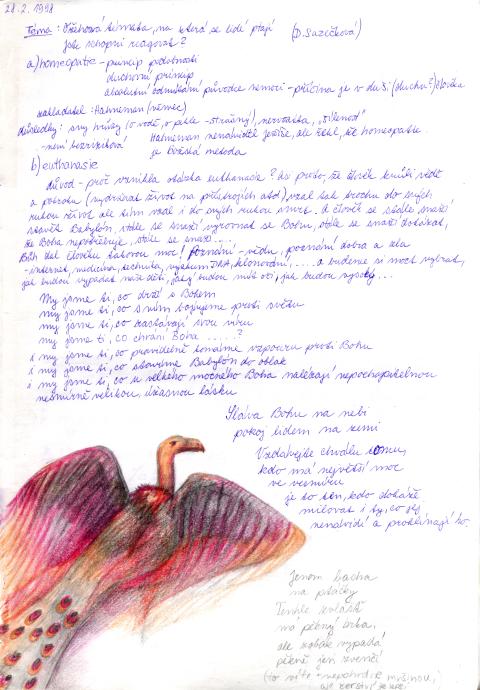 28.2.1998
Téma: Ořechová témata, na která se lidé ptají (D. Sazečková)
Jak schopni reagovat?
a) homeopatie - princip podobnosti
duchovní princip
absolutní odmítání původce nemoci - příčina je v duši (duchu?) člověka
zakladatel: Hahneman (němec)
důsledky: sny hrůzy (o vodě, o pekle - strašný), nervozita, "šílenost"
- není bezvýchova Hahneman nenáviděl Ježíše, ale řekl, že homeopatie
je Božská metoda
b) euthanasie
důvod - proč vznikla otázka euthanasie? Asi proto, že člověk kvůli vědě
a pokroku (vydržovat život na přístrojích atd.) vzal tak trochu do svých
rukou život, ale tím vzal i do svých rukou smrt. A člověk se stále snaží
stavět Babylón, stále se snaží vyrovnat se Bohu, stále se snaží dokázat,
že Boha nepotřebuje, stále se snaží...
Bůh dal člověku takovou moc! Poznání - vědu, poznání dobra a zla
- internet, medicína, technika, výzkum DNA, klonování, .... a budeme si moct vybrat,
jak budou vypadat naše děti, jaký budou mít oči, jak budou vysoký...
My jsme ti, co drží s Bohem
my jsme ti, co s ním bojujeme proti světu
my jsme ti, co zastávají svou víru
my jsme ti, co chrání Boha .....?
i my jsme ti, co pravidelně konáme vzpouru proti Bohu
i my jsme ti, co stavíme Babylón do oblak
i my jsme ti, co u velkého mocného Boha nalézají nepochopitelnou
nesmírně velikou, úžasnou lásku
Sláva Bohu na nebi
pokoj lidem na zemi
Vzdávejte chválu tomu,
kdo má největší moc
ve vesmíru
je to ten, kdo dokáže
milovat i ty, co jej
nenávidí a proklínají ho.
Jenom bacha
na ptáčky
Tenhle zvlášť
má pěkný brka,
ale zobák vypadá
pěkně jen zvenčí
(to víte - nepohrdne mršinou,